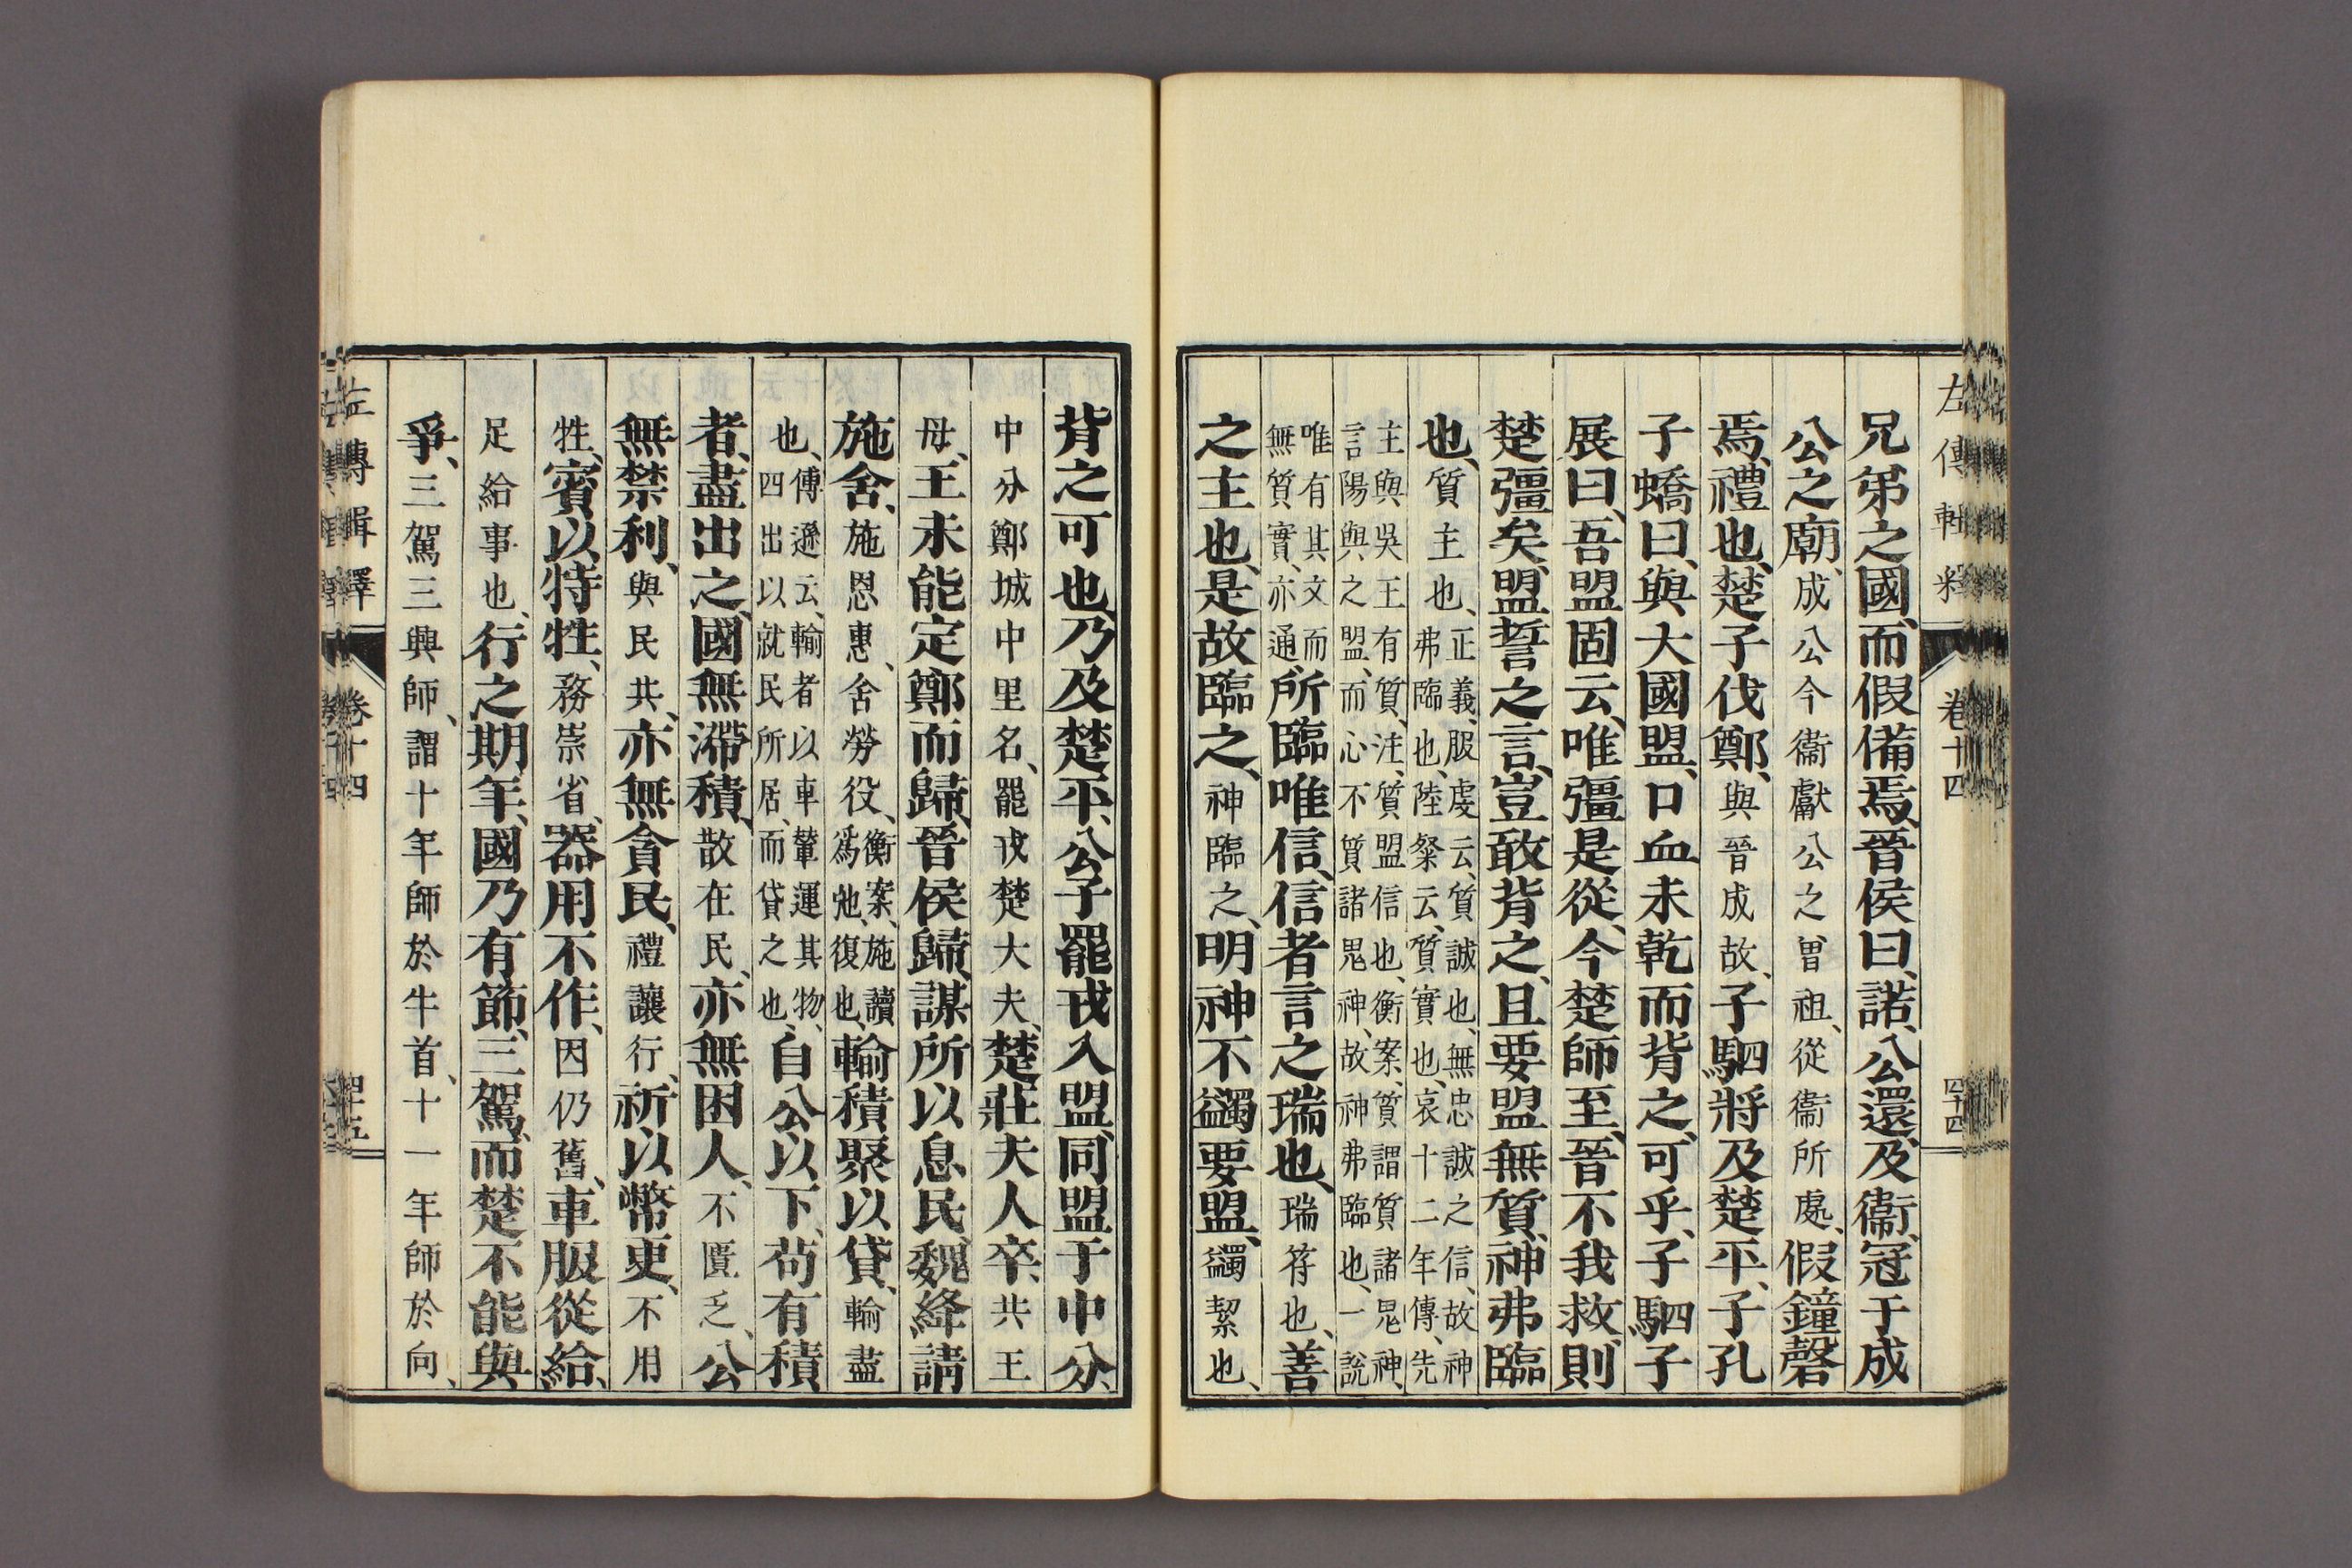 左傳輯釋 卷十四 四十四
兄弟之國、而假備焉、晉侯曰、諾、公還、及衞、冠于成
公之廟、成公今衞獻公之曾祖、從衞所處、假鐘磬
焉、禮也、楚子伐鄭、與晉成故、子駟將及楚平、子孔
子蟜曰、與大國盟、口血未乾而背之、可乎、子駟子
展曰、吾盟固云、唯彊是從、今楚師至、晉不我救、則
楚彊矣、盟誓之言、豈敢背之、且要盟無質、神弗臨
也、質主也、正義、服虔云、質誠也、無忠誠之信、故神
弗臨也、陸粲云、質實也、哀十二年傳、先
主與吳王有質、注、質盟信也、衡案、質謂質諸鬼神、
言陽與之盟、而心不質諸鬼神、故神弗臨也、一說
唯有其文而
無質實、亦通、所臨唯信、信者言之瑞也、瑞符也、善
之主也、是故臨之、神臨之、明神不蠲要盟、蠲絜也、
背之可也、乃及楚平、公子罷戎入盟、同盟于中分、
中分鄭城中里名、罷戎楚大夫、楚莊夫人卒、共王
母、王未能定鄭而歸、晉侯歸、謀所以息民、魏絳請
施舍、施恩惠、舍勞役、衡案、施讀
爲弛、復也、輸積聚以貸、輸盡
也、傳遜云、輸者以車輦運其物、
四出以就民所居、而貸之也、自公以下、苟有積
者、盡出之、國無滯積、散在民、亦無困人、不匱乏、公
無禁利、與民共、亦無貪民、禮讓行、祈以幣更、不用
牲、賓以特牲、務崇省、器用不作、因仍舊、車服從給、
足給事也、行之期年、國乃有節、三駕、而楚不能與
爭、三駕三興師、謂十年師於牛首、十一年師於向、
左傳輯釋 卷十四 四十五